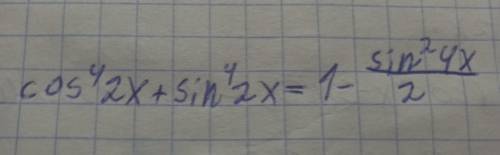 cos⁴2x + sin⁴2x = 1 - sin²4x/2